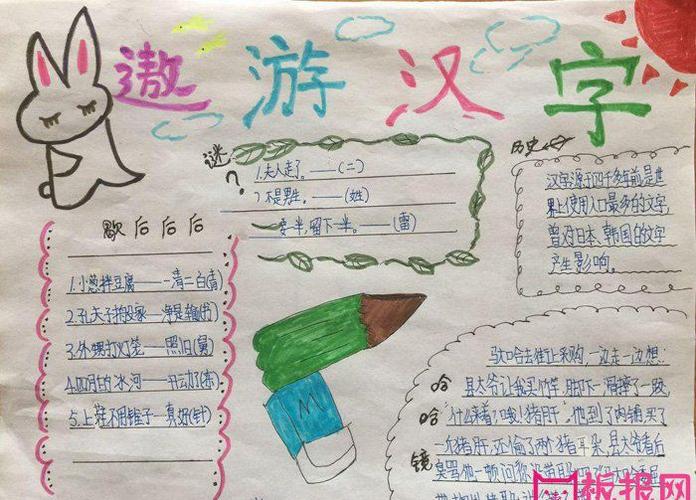 遨游汉字
谜?
1.夫人走了。——(二)
2不是男生。——(姓)
一半,留下一半。——(雷)
历史
汉字源于四千多年前是世
界上使用人口最多的文字,
曾对日本、韩国的文字
产生影响。
歇后后后
1.小葱拌豆腐——清二白(青)
2.孔夫子搬家——净是输(书)
3.外甥打灯笼——照旧(舅)
4.四月的冰河——开动了(冻)
5.上鞋不用锥子—真好(针)
M
哈哈镜
马大哈去街上采购,一边走一边想:
县太爷让我买竹竿,脚下一滑摔了一跤,
"什么来着?哦!猪肝",他到了肉铺买了
一个猪肝,还偷了两个猪耳朵,县太爷看后
臭骂他一顿问你
板报网